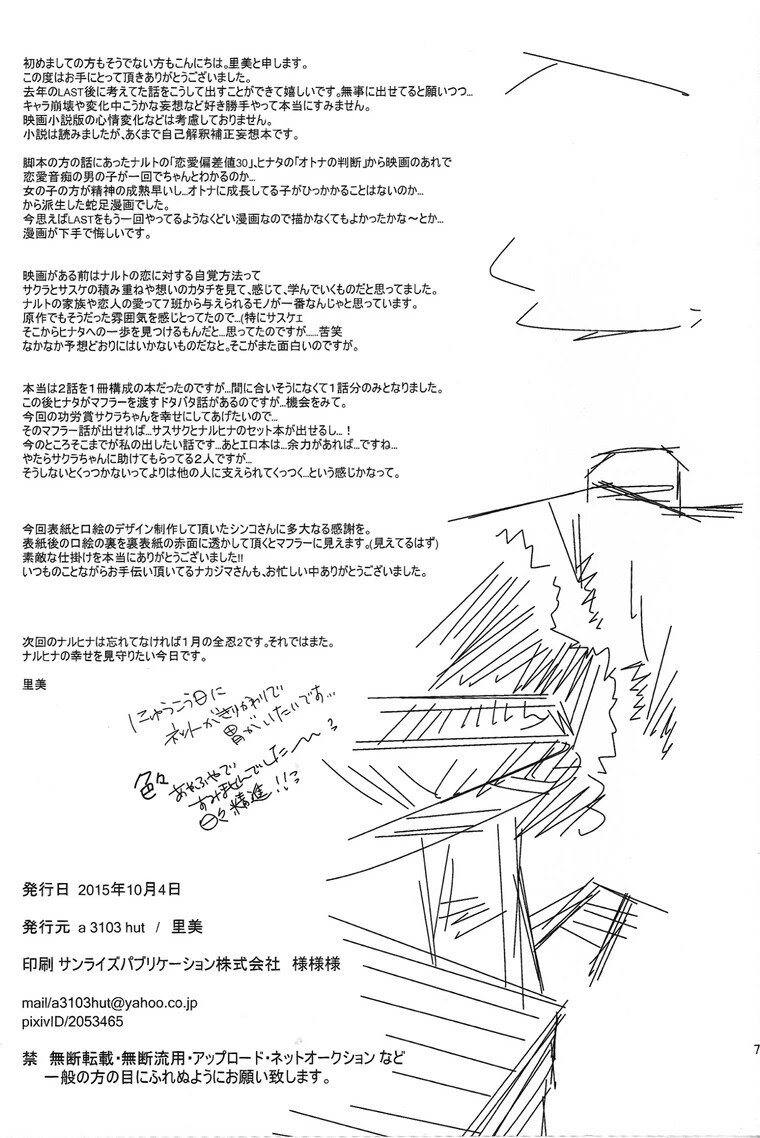 初めましての方もそうでない方もこんにちは。里美と申します。
この度はお手にとって頂きありがとうございました。
去年のLAST後に考えてた話をこうして出すことができて嬉しいです。無事に出せてると願いつつ…
キャラ崩壊や変化中こうかな妄想など好き勝手やって本当にすみません。
映画小説版の心情変化などは考慮しておりません。
小説は読みましたが、あくまで自己解釈補正妄想本です。
脚本の方の話にあったナルトの「恋愛偏差値30」、ヒナタの「オトナの判断」から映画のあれで
恋愛音痴の男の子が一回でちゃんとわかるのか…
女の子の方が精神の成熟早いし…オトナに成長してる子がひっかかることはないのか…
から派生した蛇足漫画でした。
今思えばLASTをもう一回やってるようなくどい漫画なので描かなくてもよかったかな～とか…
漫画が下手で悔しいです。
映画がある前はナルトの恋に対する自覚方法って
サクラとサスケの積み重ねや想いのカタチを見て、感じて、学んでいくものだと思ってました。
ナルトの家族や恋人の愛って7班から与えられるモノが一番なんじゃと思っています。
原作でもそうだった雰囲気を感じとってたので…(特にサスケェ
そこからヒナタへの一歩を見つけるもんだと…思ってたのですが……苦笑
なかなか予想どおりにはいかないものだなと。そこがまた面白いのですが。
本当は2話を1冊構成の本だったのですが…間に合いそうになくて1話分のみとなりました。
この後ヒナタがマフラーを渡すドタバタ話があるのですが…機会をみて。
今回の功労賞サクラちゃんを幸せにしてあげたいので…
そのマフラー話が出せれば…サスサクとナルヒナのセット本が出せるし…！
今のところそこまでが私の出したい話です…あとエロ本は…余力があれば…ですね…
やたらサクラちゃんに助けてもらってる2人ですが…
そうしないとくっつかないってよりは他の人に支えられてくっつく…という感じかなって。
今回表紙と口絵のデザイン制作して頂いたシンコさんに多大なる感謝を。
表紙後の口絵の裏を裏表紙の赤面に透かして頂くとマフラーに見えます。(見えてるはず)
素敵な仕掛けを本当にありがとうございました!!
いつものことながらお手伝い頂いてるナカジマさんも、お忙しい中ありがとうございました。
次回のナルヒナは忘れてなければ1月の全忍2です。それではまた。
ナルヒナの幸せを見守りたい今日です。
里美
にゅうこう日に
ネットがきりかわりで
胃がいたいです…
色々
あやふやで
すみませんでした〜
日々精進!!
発行日 2015年10月4日
発行元 a 3103 hut / 里美
印刷 サンライズパブリケーション株式会社 様様様
mail/a3103hut@yahoo.co.jp
pixivID/2053465
禁 無断転載・無断流用・アップロード・ネットオークション など
一般の方の目にふれぬようにお願い致します。
7